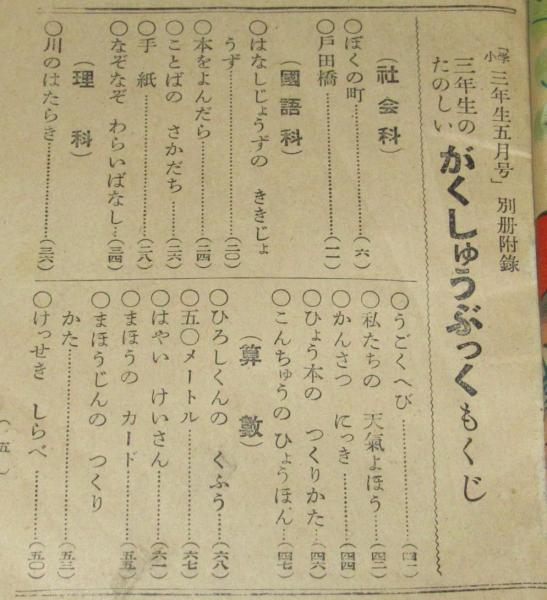 「小学三年生五月号」 別册附錄
三年生の
たのしい がくしゅうぶっくもくじ
(社会科)
○ぼくの町……(六)
○戸田橋……(一一)
(國語科)
○はなしじょうずの ききじょ
うず……(二〇)
○本をよんだら……(二四)
○ことばの さかだち……(二六)
○手紙……(二八)
○なぞなぞ わらいばなし…(三四)
(理科)
○川のはたらき……(三六)
○うごくへび……(四一)
○私たちの 天氣よほう……(四二)
○かんさつ にっき……(四四)
○ひょう本の つくりかた…(四六)
○こんちゅうの ひょうほん…(四七)
(算数)
○ひろしくんの くふう……(六八)
○五〇メートル……(六七)
○はやい けいさん……(六一)
○まほうの カード……(五五)
○まほうじんの つくり
かた……(五三)
○けっせき しらべ……(五〇)
(五)